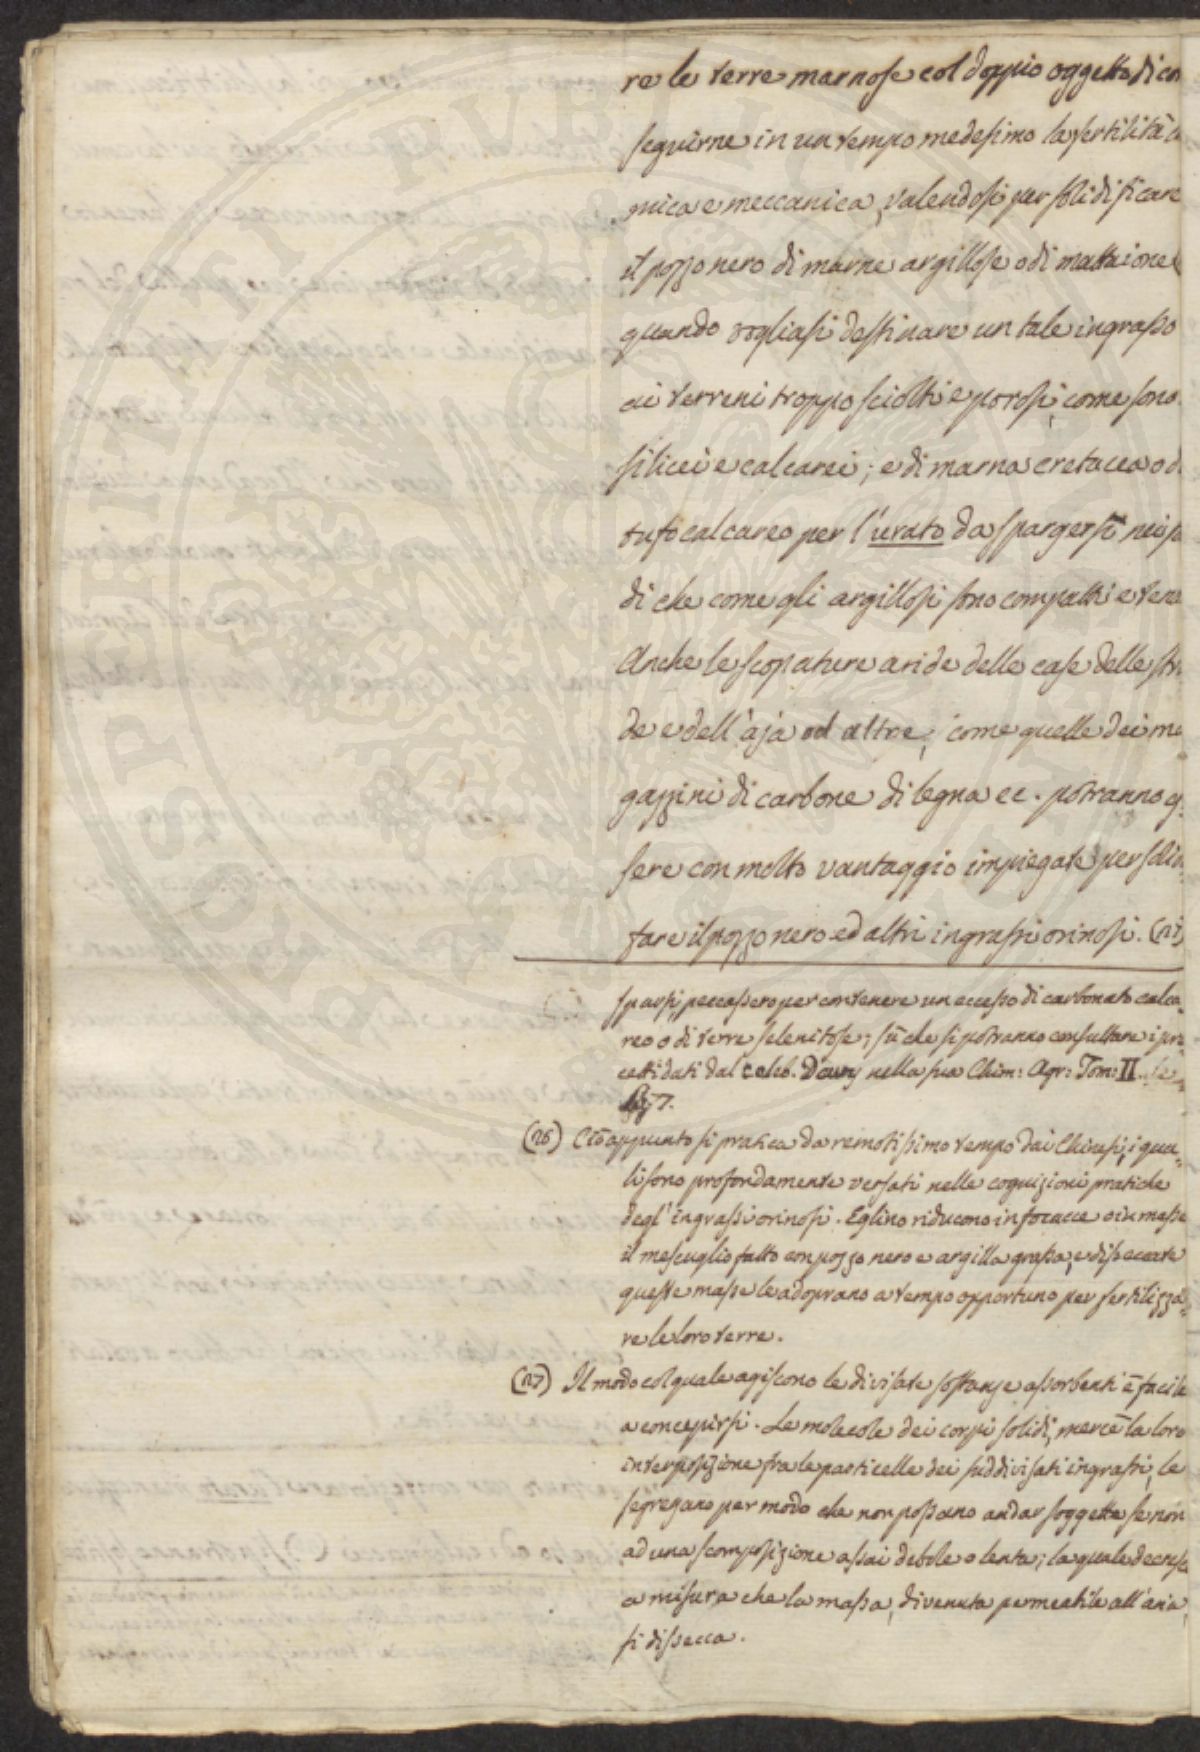 re le terre marnose col doppio oggetto di con
seguirne in un tempo medesimo la fertilità c
mica e meccanica, valendosi per solidificare
il pozzo nero di marne argillose o di mattaione
quando vogliasi destinare un tale ingrasso
ai terreni troppo sciolti e porosi, come sono
silicei e calcarei; e di marna cretacea o d
tufo calcareo per l'urato da spargersi nei po
di che come gli argillosi sono compatti e tena
Anche le scopature aride delle case delle stra
de e dell'aja od altre, come quelle dei ma
gazzini di carbone di legna ec. potranno es
sere con molto vantaggio impiegate per solid
tare il pozzo nero ed altri ingrassi orinosi. (27)
sparsi, peccassero per contenere un eccesso di carbonato calca-
reo o di terre selenitose; sù che si potranno consultare i pre
cetti dati dal celeb. Davy nella sua Chim: Agr: Tom: II.
(26) Ciò appunto si pratica da remotissimo tempo dai Chinesi, i qua-
li sono profondamente versati nelle cognizioni pratiche
degl'ingrassi orinosi. Eglino riducono in focacce o in masse
il mescuglio fatto con pozzo nero e argilla grassa, e dissecate
queste masse le adoprano a tempo opportuno per fertilizza-
re le loro terre.
(27) Il modo col quale agiscono le divisate sostanze assorbenti è facile
a concepirsi. Le molecole dei corpi solidi, mercè la loro
interposizione fra le particelle dei suddivisati ingrassi, le
segregano per modo che non possano andar soggette se non
ad una scomposizione assai debole o lenta; la quale decresce
a misura che la massa, divenuta permeabile all'aria,
si dissecca.
PVBLICAE
PROSPERITATI